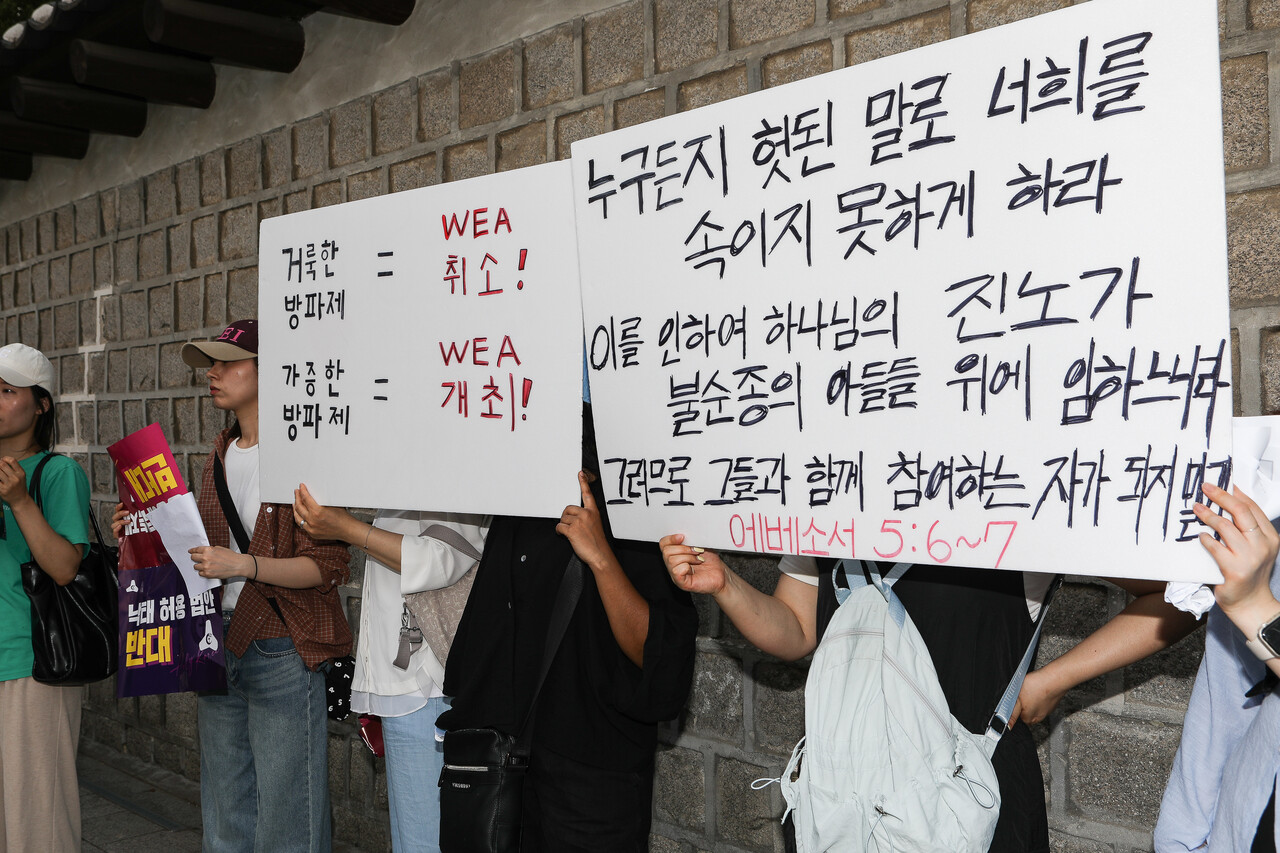 거룩한 = WEA
방파제 취소!
가증한 = WEA
방파제 개최!
누구든지 헛된 말로 너희를
속이지 못하게 하라
이를 인하여 하나님의 진노가
불순종의 아들들 위에 임하느니라
그러므로 그들과 함께 참여하는 자가 되지 말라
에베소서 5:6~7
낙태 허용 법안
반대